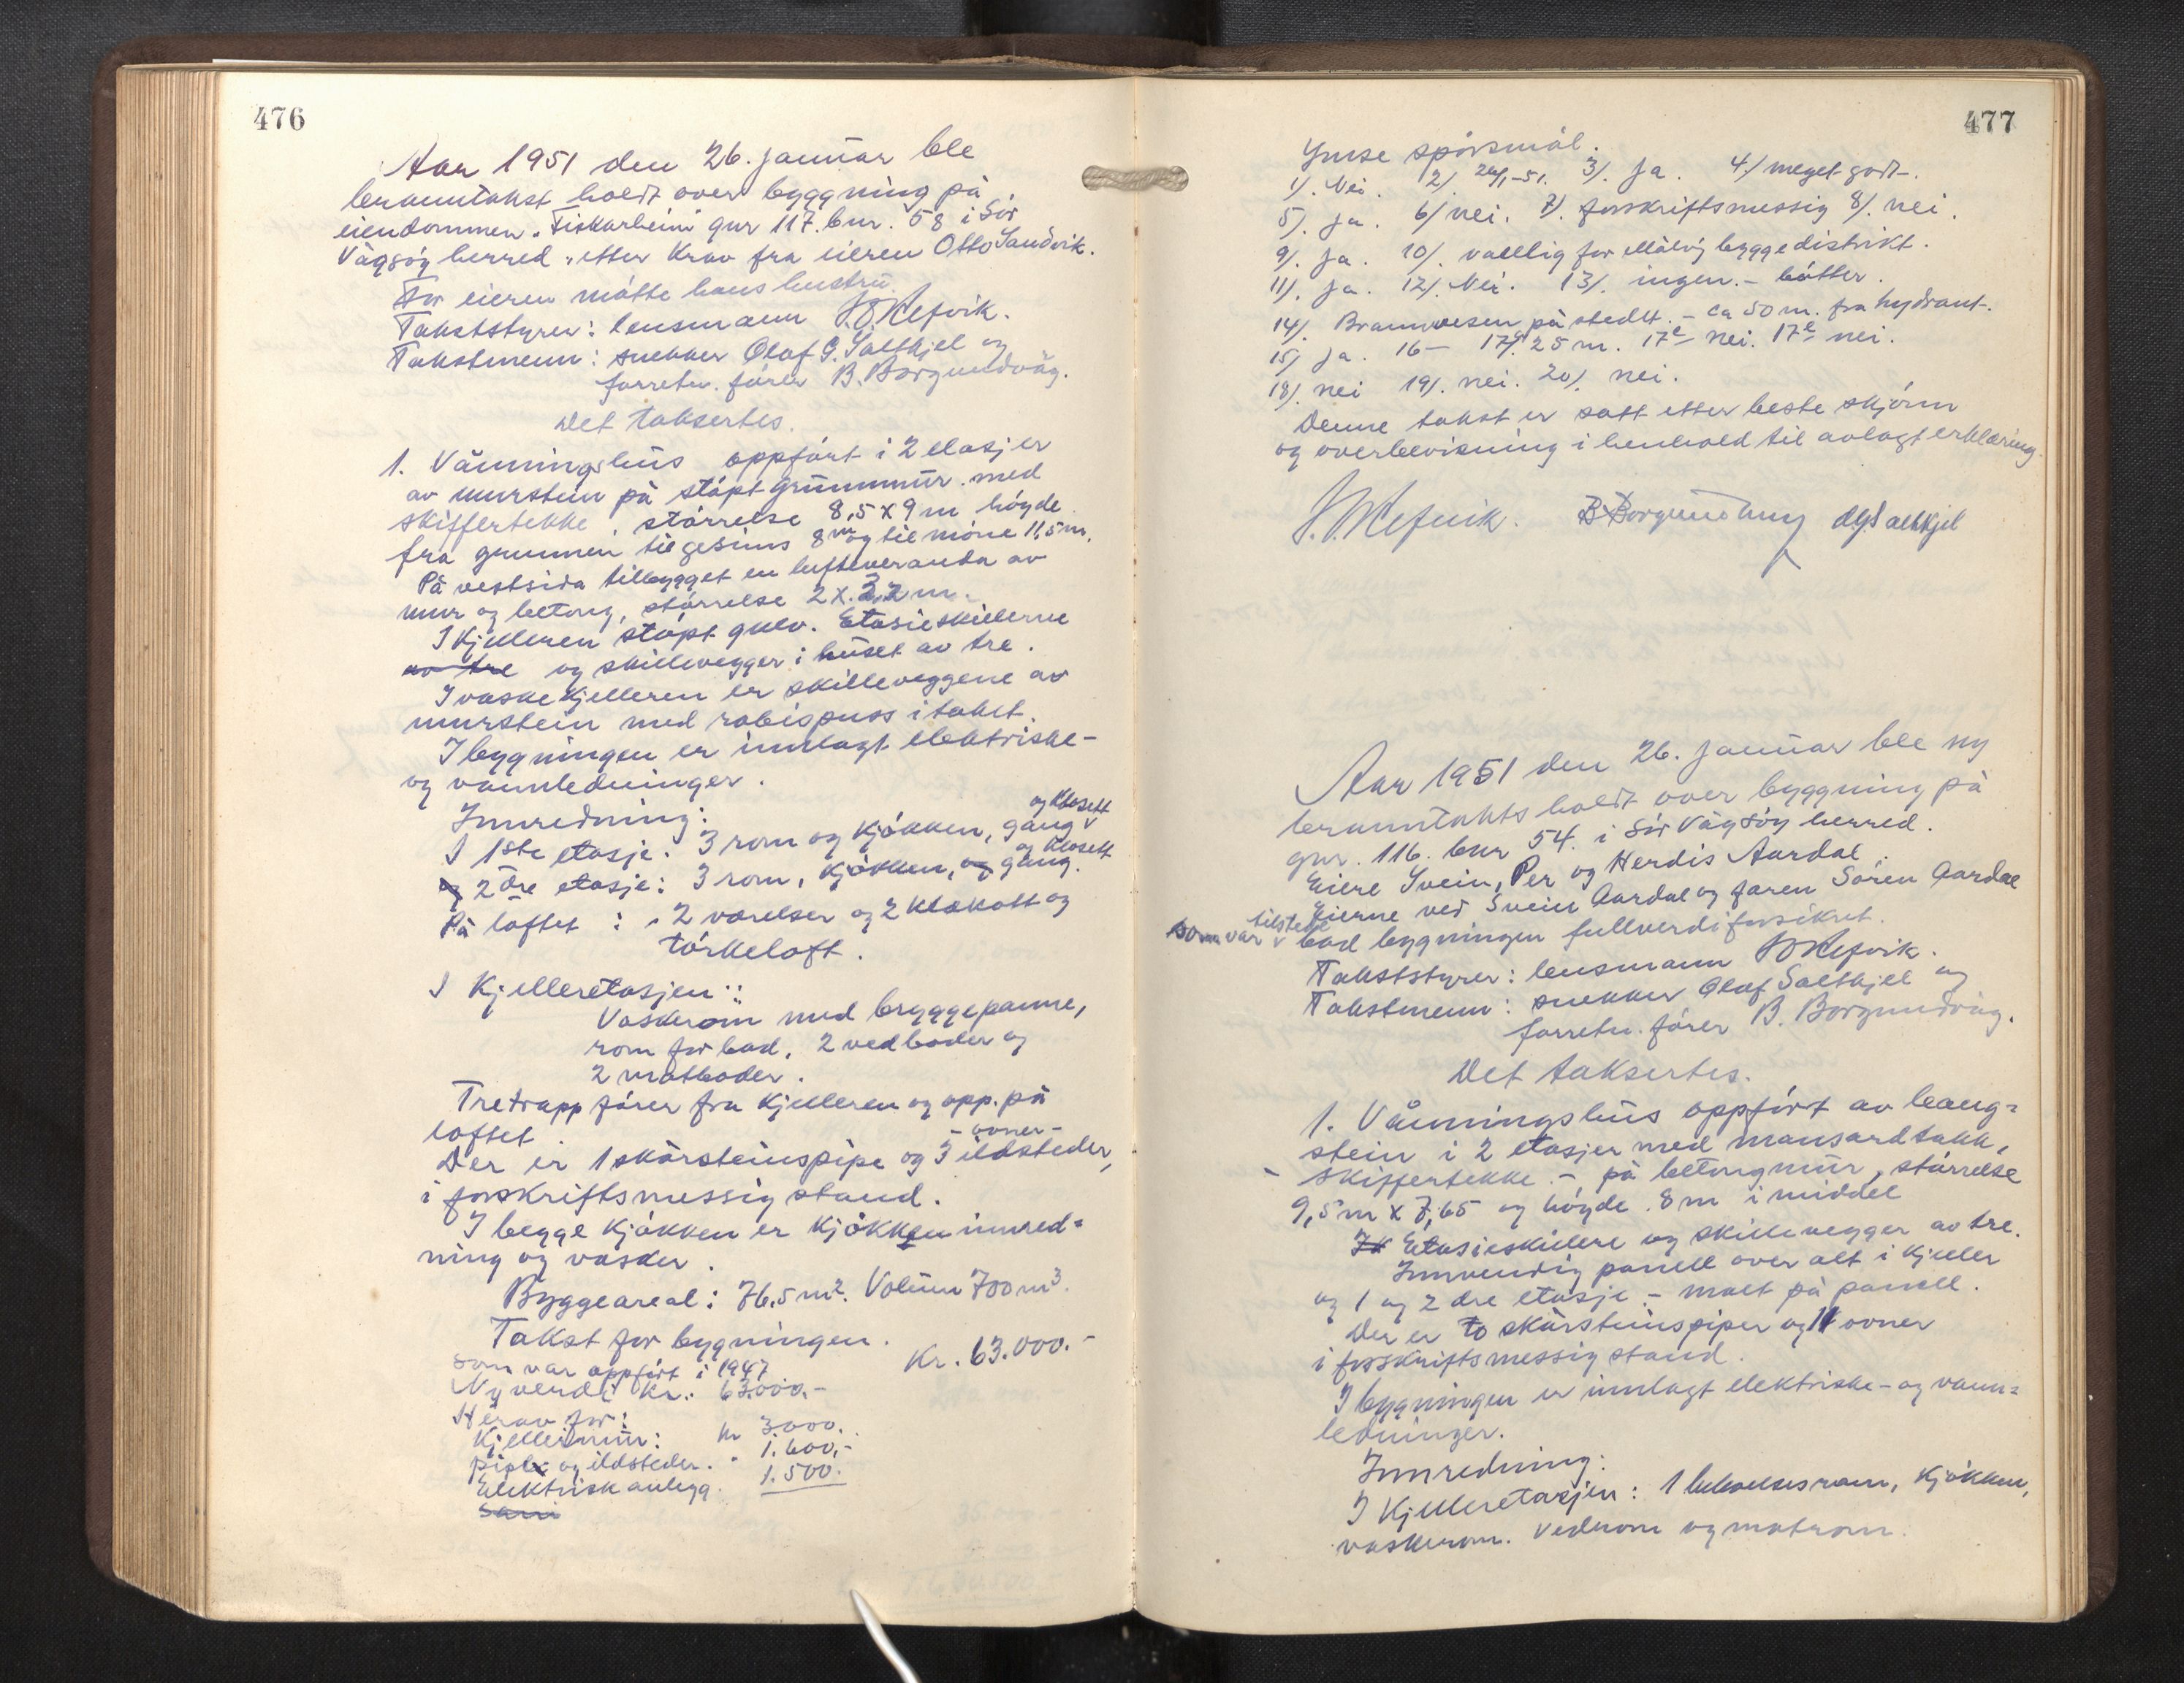 476
Aar 1951 den 26. januar ble
branntakst holdt over byggning på
eiendommen "Fiskarheim" gnr 117. bnr. 58 i Sør
Vågsøy herred, etter krav fra eieren Otto Sandvik.
For eieren møtte hans hustru.
Takststyrer: lensmann S.O. Refvik.
Takstmenn: snekker Olaf G. Saltkjel og
forretn. fører B. Borgundvåg.
Det taksertes.
1. Våningshus oppført i 2 etasjer
av murstein på støpt grunnmur med
skiffertekke, størrelse 8,5 x 9 m høgde
fra grunnen til gesims 8 m og til møne 11,5 m.
På vestsida tilbygget en luftveranda av
mur og betong, størrelse 2 x 3,2 m.
I kjelleren støpt gulv. Etasjeskillerne
av tre og skillevegger i huset av tre.
I vaskekjelleren er skilleveggene av
murstein med rabispuss i taket.
I bygningen er innlagt elektriske-
og vannledninger.
Innredning:
og klosett
I 1ste etasje: 3 rom og kjøkken, gang
og klosett
og 2dre etasje: 3 rom, kjøkken, og gang.
På loftet: 2 værelser og 2 klækott og
tørkeloft.
I Kjelleretasjen:
Vaskerom med bryggepanne,
rom for bad, 2 vedboder og
2 matboder.
Tretrapp fører fra kjelleren og opp på
loftet.
- ovner -
Der er 1 skorsteinspipe og 3 ildsteder,
i forskriftsmessig stand.
I begge kjøkken er kjøkkeninnred=
ning og vasker.
Byggeareal: 76,5 m². Volum 700 m³.
Takst for bygningen.
Kr. 63.000.-
som var oppført i 1947
Nyverdi kr.: 63000.-
Herav for:
Kjellermur: kr 3.000.
pipe og ildsteder. " 1.600,-
Elektrisk anlegg. 1.500.
Sani
477
Ymse spørsmål.
1). Nei. 2). 26/1-51. 3). Ja. 4/ meget godt.
5). Ja. 6/ nei. 7). forskriftsmessig 8/. nei.
9). Ja. 10/. vanlig for Måløy byggedistrikt.
11). Ja. 12/. Nei. 13/. ingen.- bøtter.
14). Brannvesen på stedet. - ca 50 m. fra hydrant.
15) Ja. 16- 17d. 25 m. 17e nei. 17e nei.
18). nei 19). nei. 20). nei.
Denne takst er satt etter beste skjønn
og overbevisning i henhold til avlagt erklæring.
S.O. Refvik. B. Borgundvåg O.G. Saltkjel
Aar 1951 den 26. januar ble ny
branntakts holdt over byggning på
gnr. 116. bnr 54. i Sør Vågsøy herred.
Eiere Svein, Per og Herdis Aardal.
Eierne ved Svein Aardal og faren Søren Aardal
som var tilstede bad bygningen fullverdiforsikret.
Takststyrer: lensmann S O Refvik.
Takstmenn: snekker Olaf Saltkjel og
forretn. fører B. Borgundvåg.
Det taksertes.
1. Våningshus oppført av leang=
stein i 2 etasjer med mansardtakk,
- skiffertekke.-, på betongmur, størrelse
9,5 m x 7,65 og høyde 8 m i middel
Ik Etasjeskillere og skillevegger av tre.
Innvendig panell over alt i kjeller
og 1 og 2dre etasje. - malt på panell.
Der er to skorsteinspiper og 11 ovner
i forskriftsmessig stand.
I bygningen er innlagt elektriske- og vann=
ledninger.
Innredning:
I kjelleretasjen: 1 beboelsesrom, kjøkken,
vaskerom. vedrom og matrom.